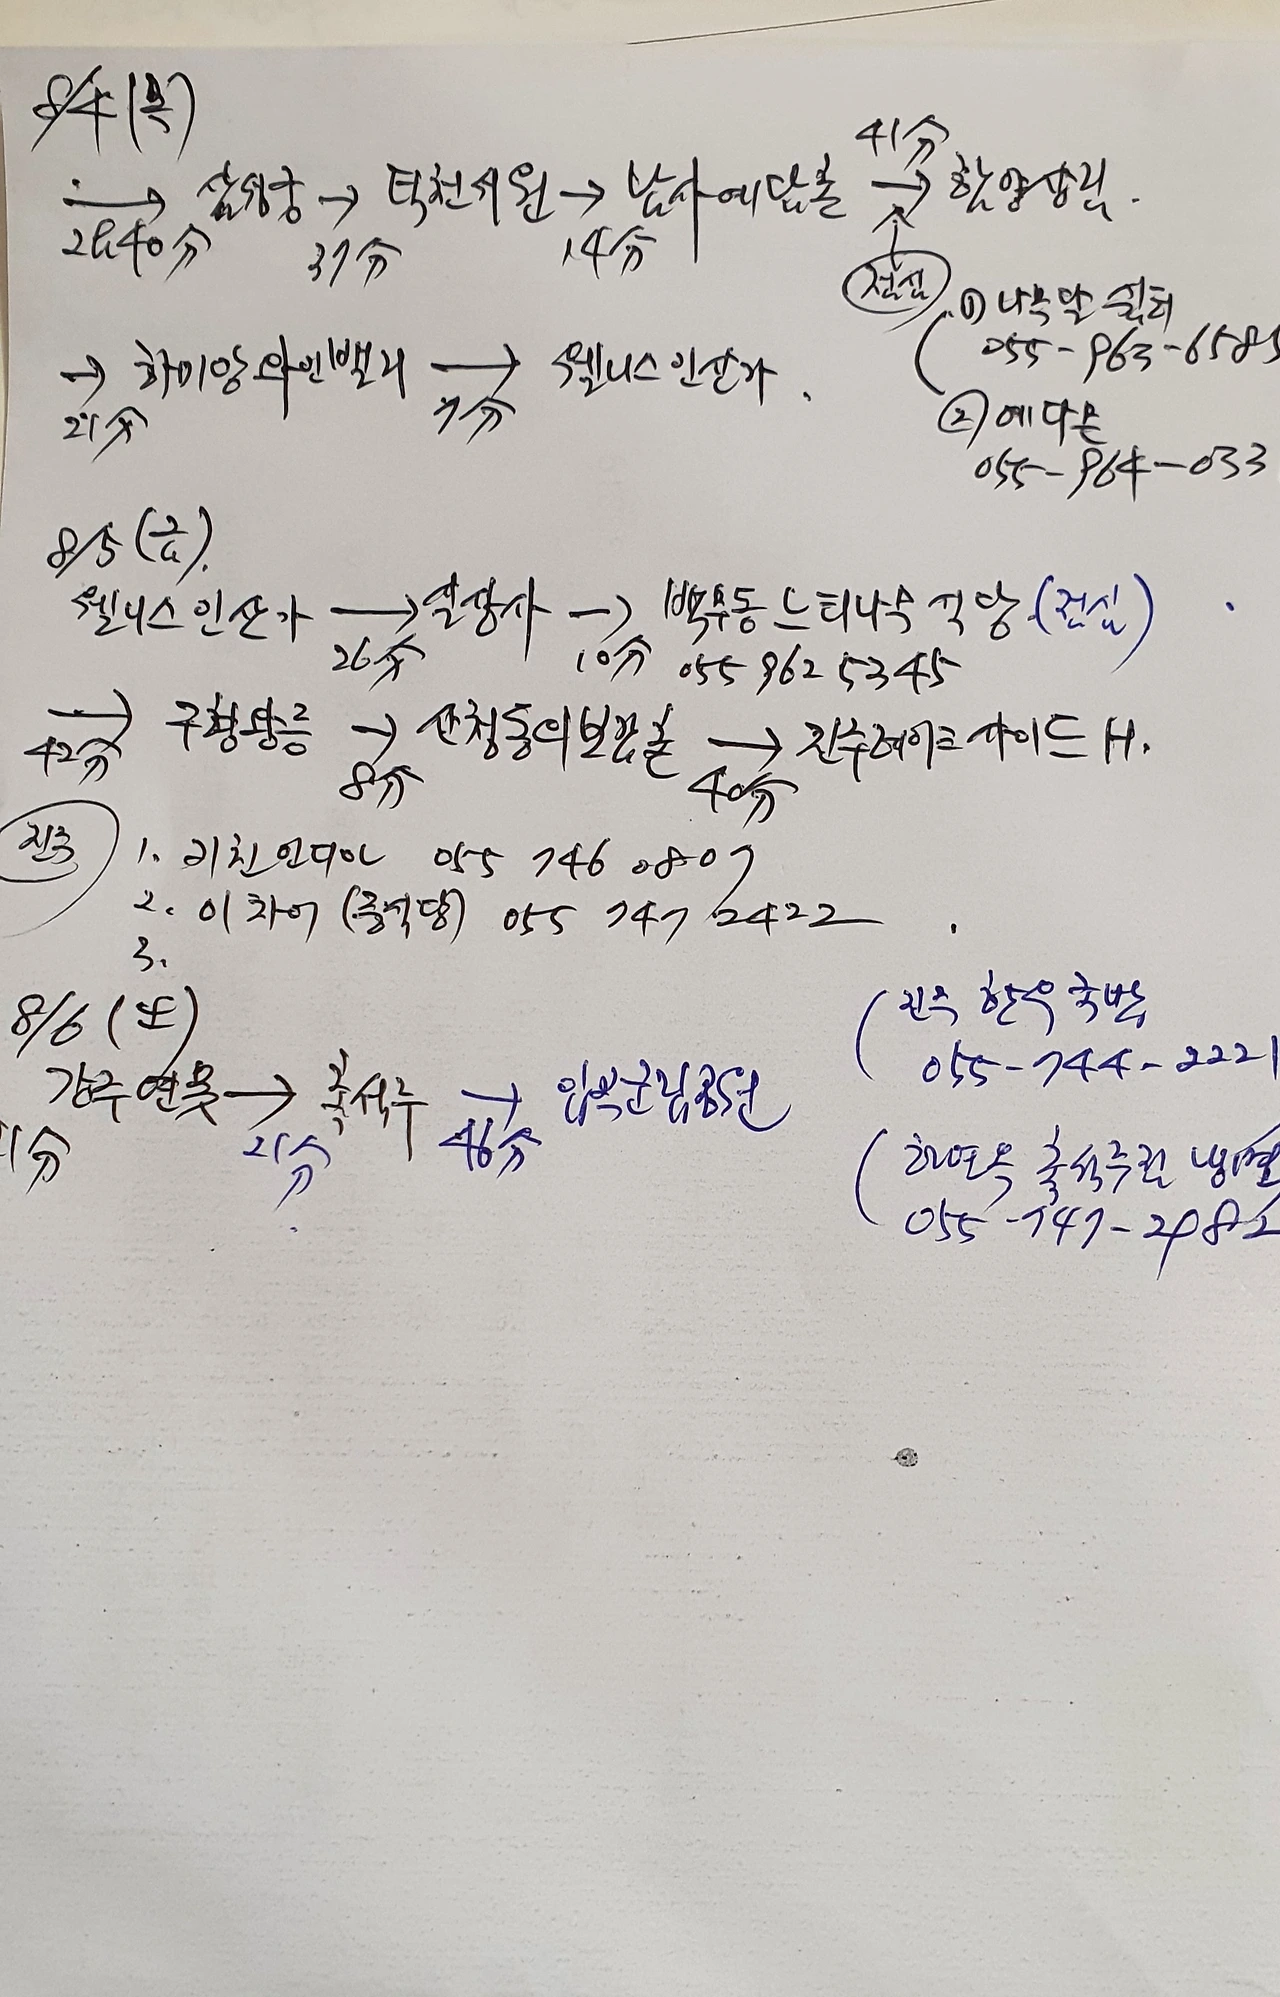 8/4 (목)
41分
→ 삼성궁 → 덕천서원 → 남사예담촌 → 함양상림.
2h40分 37分 14分
점심 ① 나무달쉼터
055-963-6585
→ 하미앙와인밸리 → 웰니스인산가.
21分 7分
② 예다믄
055-964-033
8/5 (금).
웰니스인산가 → 실상사 → 백무동느티나무식당 (점심)
26分 10分 055 962 5345
→ 구형왕릉 → 산청동의보감촌 → 진주레이크사이드 H.
42分 8分 40分
진주 1. 키친인디아 055 746 0807
2. 이차어 (중식당) 055 747 2422
3.
8/6 (토)
진주 한우국밥
055-744-2221
강주연못 → 촉석루 → 입곡군립공원
1分 21分 46分
하연옥 촉석루점 냉면
055-747-2982